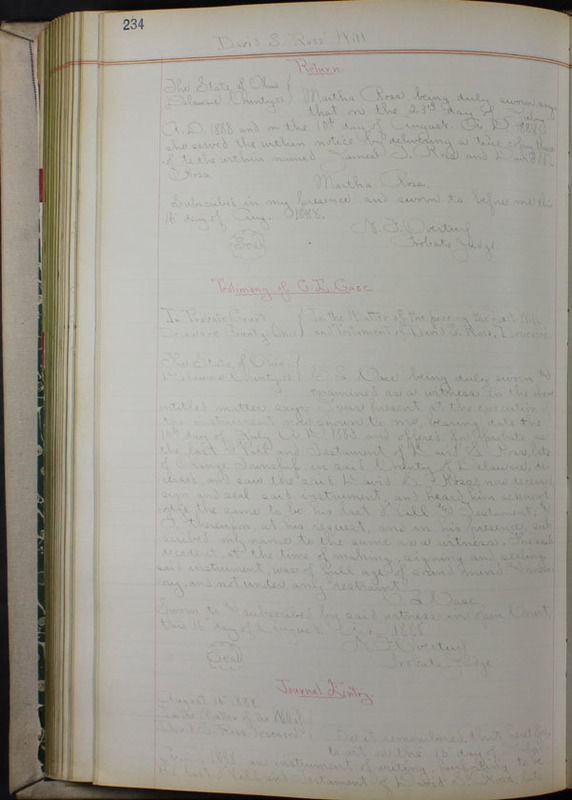 234
David S. Ross' Will
Return
The State of Ohio
Delaware County ss Martha Ross being duly sworn says
that on the 23rd day of July
A.D. 1888 and on the 10th day of August A D 1888
she served the within notice by delivering a true copy there
of to the within named James T. Ross and
Ross
Martha Ross.
Subscribed in my presence and sworn to before me this
16 day of Aug. 1888.
N. F. Overturf
Seal
Probate Judge
Testimony of C. L. Case
In Probate Court
Delaware County Ohio
In the Matter of the proving the Last Will
and Testament of David S. Ross, Deceased
The State of Ohio
Delaware County ss
Case being duly sworn &
examined as a witness in the above
entitled matter, says I was present at the execution of
the instrument now shown to me, bearing date the
day of July A.D. 1883 and offered for probate as
the last Will and Testament of David S. Ross, late
of Orange Township in said County of Delaware, de
ceased, and saw the said David S. Ross, now deceased
sign and seal said instrument, and heard him acknowl
edge the same to be his last Will & Testament, &
I thereupon, at his request, and in his presence, sub
scribed my name to the same as a witness. The said
decedent at the time of making, signing and sealing
said instrument, was of full age, of sound mind & memo
ry, and not under any restraint.
Case
Sworn to & subscribed by said witness in open Court,
this 16 day of August A.D. 1888
N. F. Overturf
Seal
Probate Judge
Journal Entry
August 16 1888
In the Matter of the Will of
David S. Ross deceased
Be it remembered, that heretofore
to wit, on the day of
1888 an instrument of writing, purporting to be
the last Will and Testament of David S. Ross, late